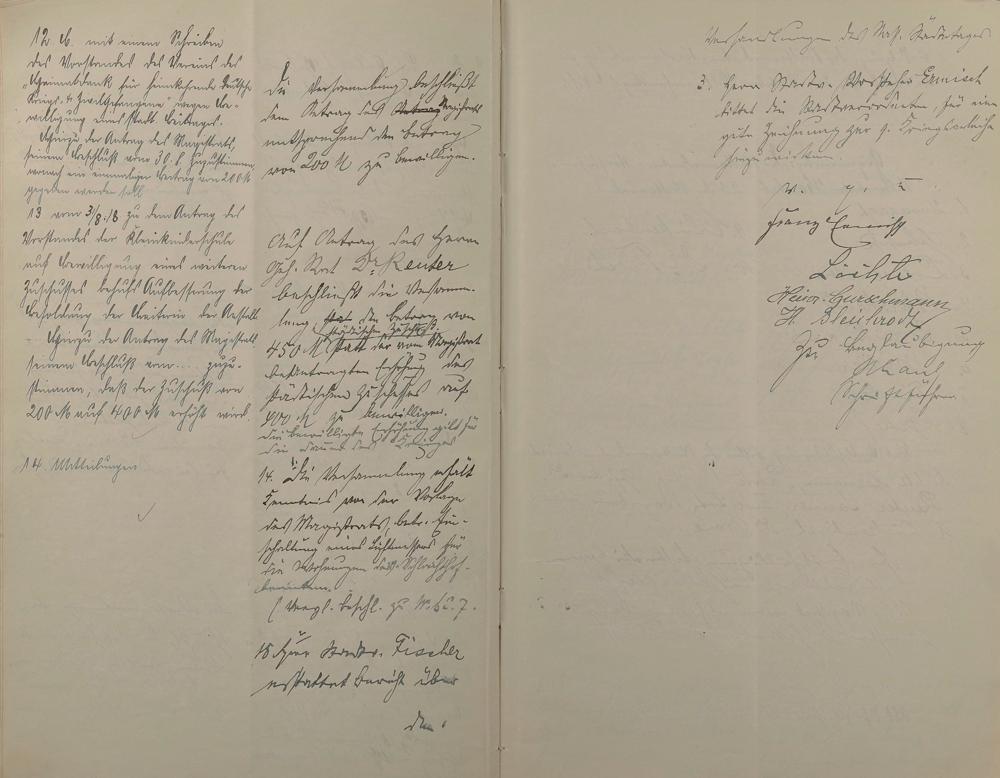 12 b. mit einem Schreiben
des Vorstandes des Vereins des
"Heimatdank für heimkehrende deutsche
Kriegs- & Zivilgefangene" wegen Be-
willigung eines städt. Beitrages.
Hierzu der Antrag des Magistrats,
seinem Beschluß vom 30. zuzustimmen,
wonach ein einmaliger Beitrag von 200 M
gegeben werden soll
13 vom 3/8.18 zu dem Antrag des
Vorstandes der Kleinkinderschule
auf Bewilligung eines weiteren
Zuschusses behufs Aufbesserung der
Besoldung der Leiterin der Anstalt
- Hierzu der Antrag des Magistrats
seinem Beschluß vom .... zuzu-
stimmen, daß der Zuschuß von
200 M auf 400 M erhöht wird.
14. Mitteilungen
Die Versammlung beschließt
dem Antrag des Magistrats
entsprechend den Betrag
von 200 M zu bewilligen.
Auf Antrag des Herrn
Geh. Rat Dr Reuter
beschließt die Versamm-
lung den Betrag von
städtischen Zuschuß
450 M statt der vom Magistrat
beantragten Erhöhung des
städtischen Zuschusses auf
400 M zu bewilligen.
Die bewilligte Erhöhung gilt für
die Dauer des Krieges
14. Die Versammlung erhält
Kenntnis von der Vorlage
des Magistrats, betr. Ein-
schaltung eines Lichtmessers für
die Wohnungen des Schlachthof-
beamten.
(Vergl. Beschl. zu N. 6 u. 7.
15 Herr Stadtv. Fischer
erstattet Bericht über
die
Verhandlungen des Nass. Städtetages
3. Herr Stadtv. Vorsteher Ermisch
bittet die Stadtverordneten, für eine
gute Zeichnung zur 9. Kriegsanleihe
hinzuwirken.
v. g. u.
Franz Ermisch
Löchte
Heinr. Curschmann
H. Bleibrodt
Zur Beglaubigung
Schriftführer.